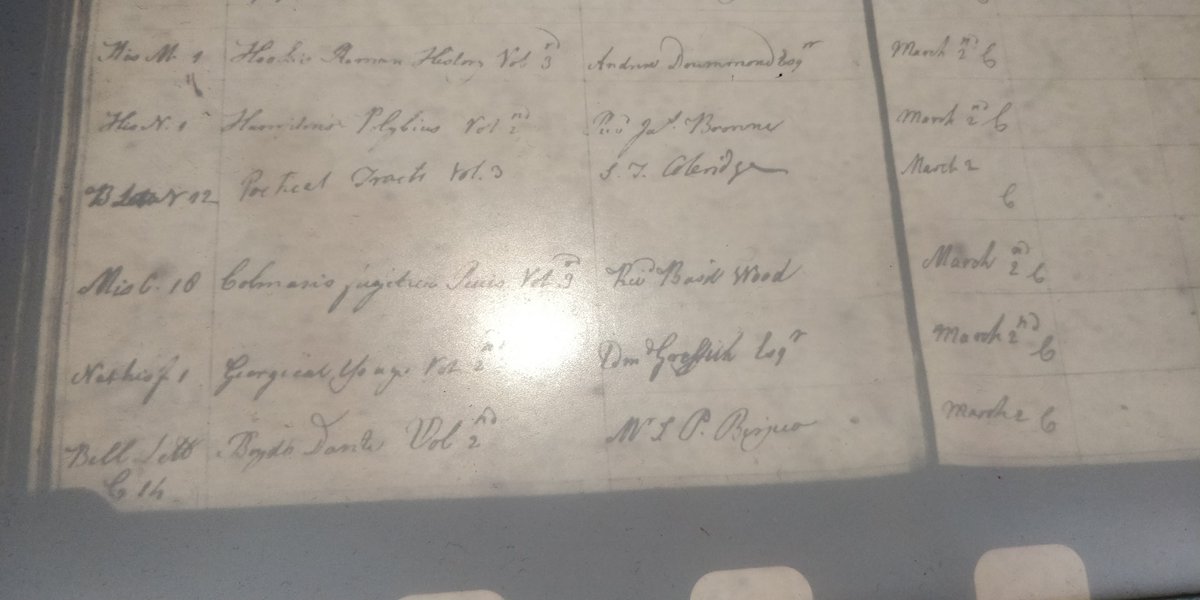 His M. 1 Hooke's Roman History Vol 3d Andrew Drummond Esqr March 2nd C
His N. 1 Hampton's Polybius Vol 2nd Revd Jas. Browne March 2nd C
B Lett N 12 Poetical Tracts Vol. 3 S. T. Coleridge March 2
C
Mis C. 18 Colman's fugitive Pieces Vol 3d Revd Basil Wood March 2nd C
Nat his f 1 Georgical Essays Vol 2nd Edmd Griffith Esqr March 2nd C
Bell Lett Boyd's Dante Vol 2nd Mr S P. March 2 C
C 14